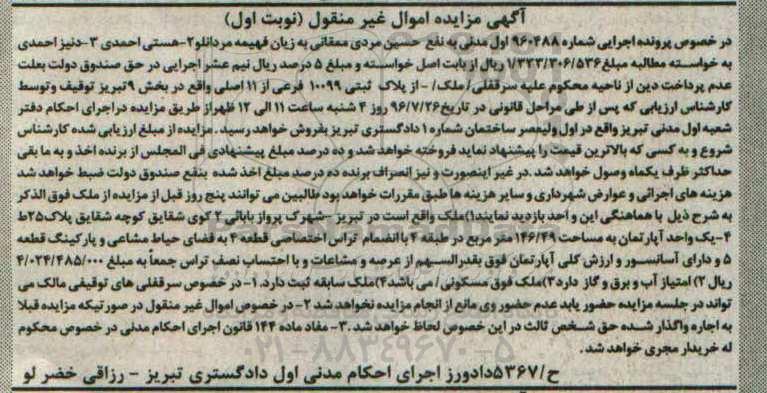 آگهی مزایده اموال غیر منقول (نوبت اول)
در خصوص پرونده اجرایی شماره ۹۶۰۴۸۸ اول مدنی به نفع حسین مردی ممقانی به زیان فهیمه مردانلو ۲-هستی احمدی ۳-دنیز احمدی
به خواسته مطالبه مبلغ ۱/۳۳۳/۳۰۶/۵۳۶ ریال از بابت اصل خواسته و مبلغ ۵ درصد ریال نیم عشر اجرایی در حق صندوق دولت بعلت
عدم پرداخت دین از ناحیه محکوم علیه سرقفلی/ ملک/ - از پلاک ثبتی ۱۰۰۹۹ فرعی از ۱۱ اصلی واقع در بخش ۹ تبریز توقیف و توسط
کارشناس ارزیابی که پس از طی مراحل قانونی در تاریخ ۹۶/۷/۲۶ روز ۴ شنبه ساعت ۱۱ الی ۱۲ ظهر از طریق مزایده در اجرای احکام دفتر
شعبه اول مدنی تبریز واقع در اول ولیعصر ساختمان شماره ۱ دادگستری تبریز بفروش خواهد رسید. مزایده از مبلغ ارزیابی شده کارشناس
شروع و به کسی که بالاترین قیمت را پیشنهاد نماید فروخته خواهد شد و ده درصد مبلغ پیشنهادی فی المجلس از برنده اخذ و به ما بقی
حداکثر ظرف یکماه وصول خواهد شد .در غیر اینصورت و نیز انصراف برنده ده درصد مبلغ اخذ شده بنفع صندوق دولت ضبط خواهد شد
هزینه های اجرائی و عوارض شهرداری و سایر هزینه ها طبق مقررات خواهد بود طالبین می توانند پنج روز قبل از مزایده از ملک فوق الذکر
به شرح ذیل با هماهنگی این و احد بازدید نمایند۱)ملک واقع است در تبریز –شهرک پرواز باباتی ۲ کوی شقایق کوچه شقایق پلاک۲۵ط
۴-یک واحد آپارتمان به مساحت ۱۴۶/۴۹ مقر مربع در طبقه ۴ با انضمام تراس اختصاصی قطعه ۴ به فضای حیاط مشاعی و پارکینگ قطعه
۵ و دارای آسانسور و ارزش کلی آپارتمان فوق بقدرالسهم از عرصه و مشاعات و با احتساب نصف تراس جمعاً به مبلغ ۴/۰۲۴/۴۸۵/۰۰۰
ریال ۲) امتیاز آب و برق و گاز دارد۳)ملک فوق مسکونی / می باشد۴)ملک سابقه ثبت دارد. ۱- در خصوص سرقفلی های توقیفی مالک می
تواند در جلسه مزایده حضور یابد عدم حضور وی مانع از انجام مزایده نخواهد شد ۲- در خصوص اموال غیر منقول در صورتیکه مزایده قبلا
به اجاره واگذار شده حق شخص ثالث در این خصوص لحاظ خواهد شد .۳- مفاد ماده ۱۴۴ قانون اجرای احکام مدنی در خصوص محکوم
له خریدار مجری خواهد شد .
ح/۵۳۶۷دادورز اجرای احکام مدنی اول دادگستری تبریز – رزاقی خضر لو
۰۲۱-۸۸۳۴۹۶۷۰-۵